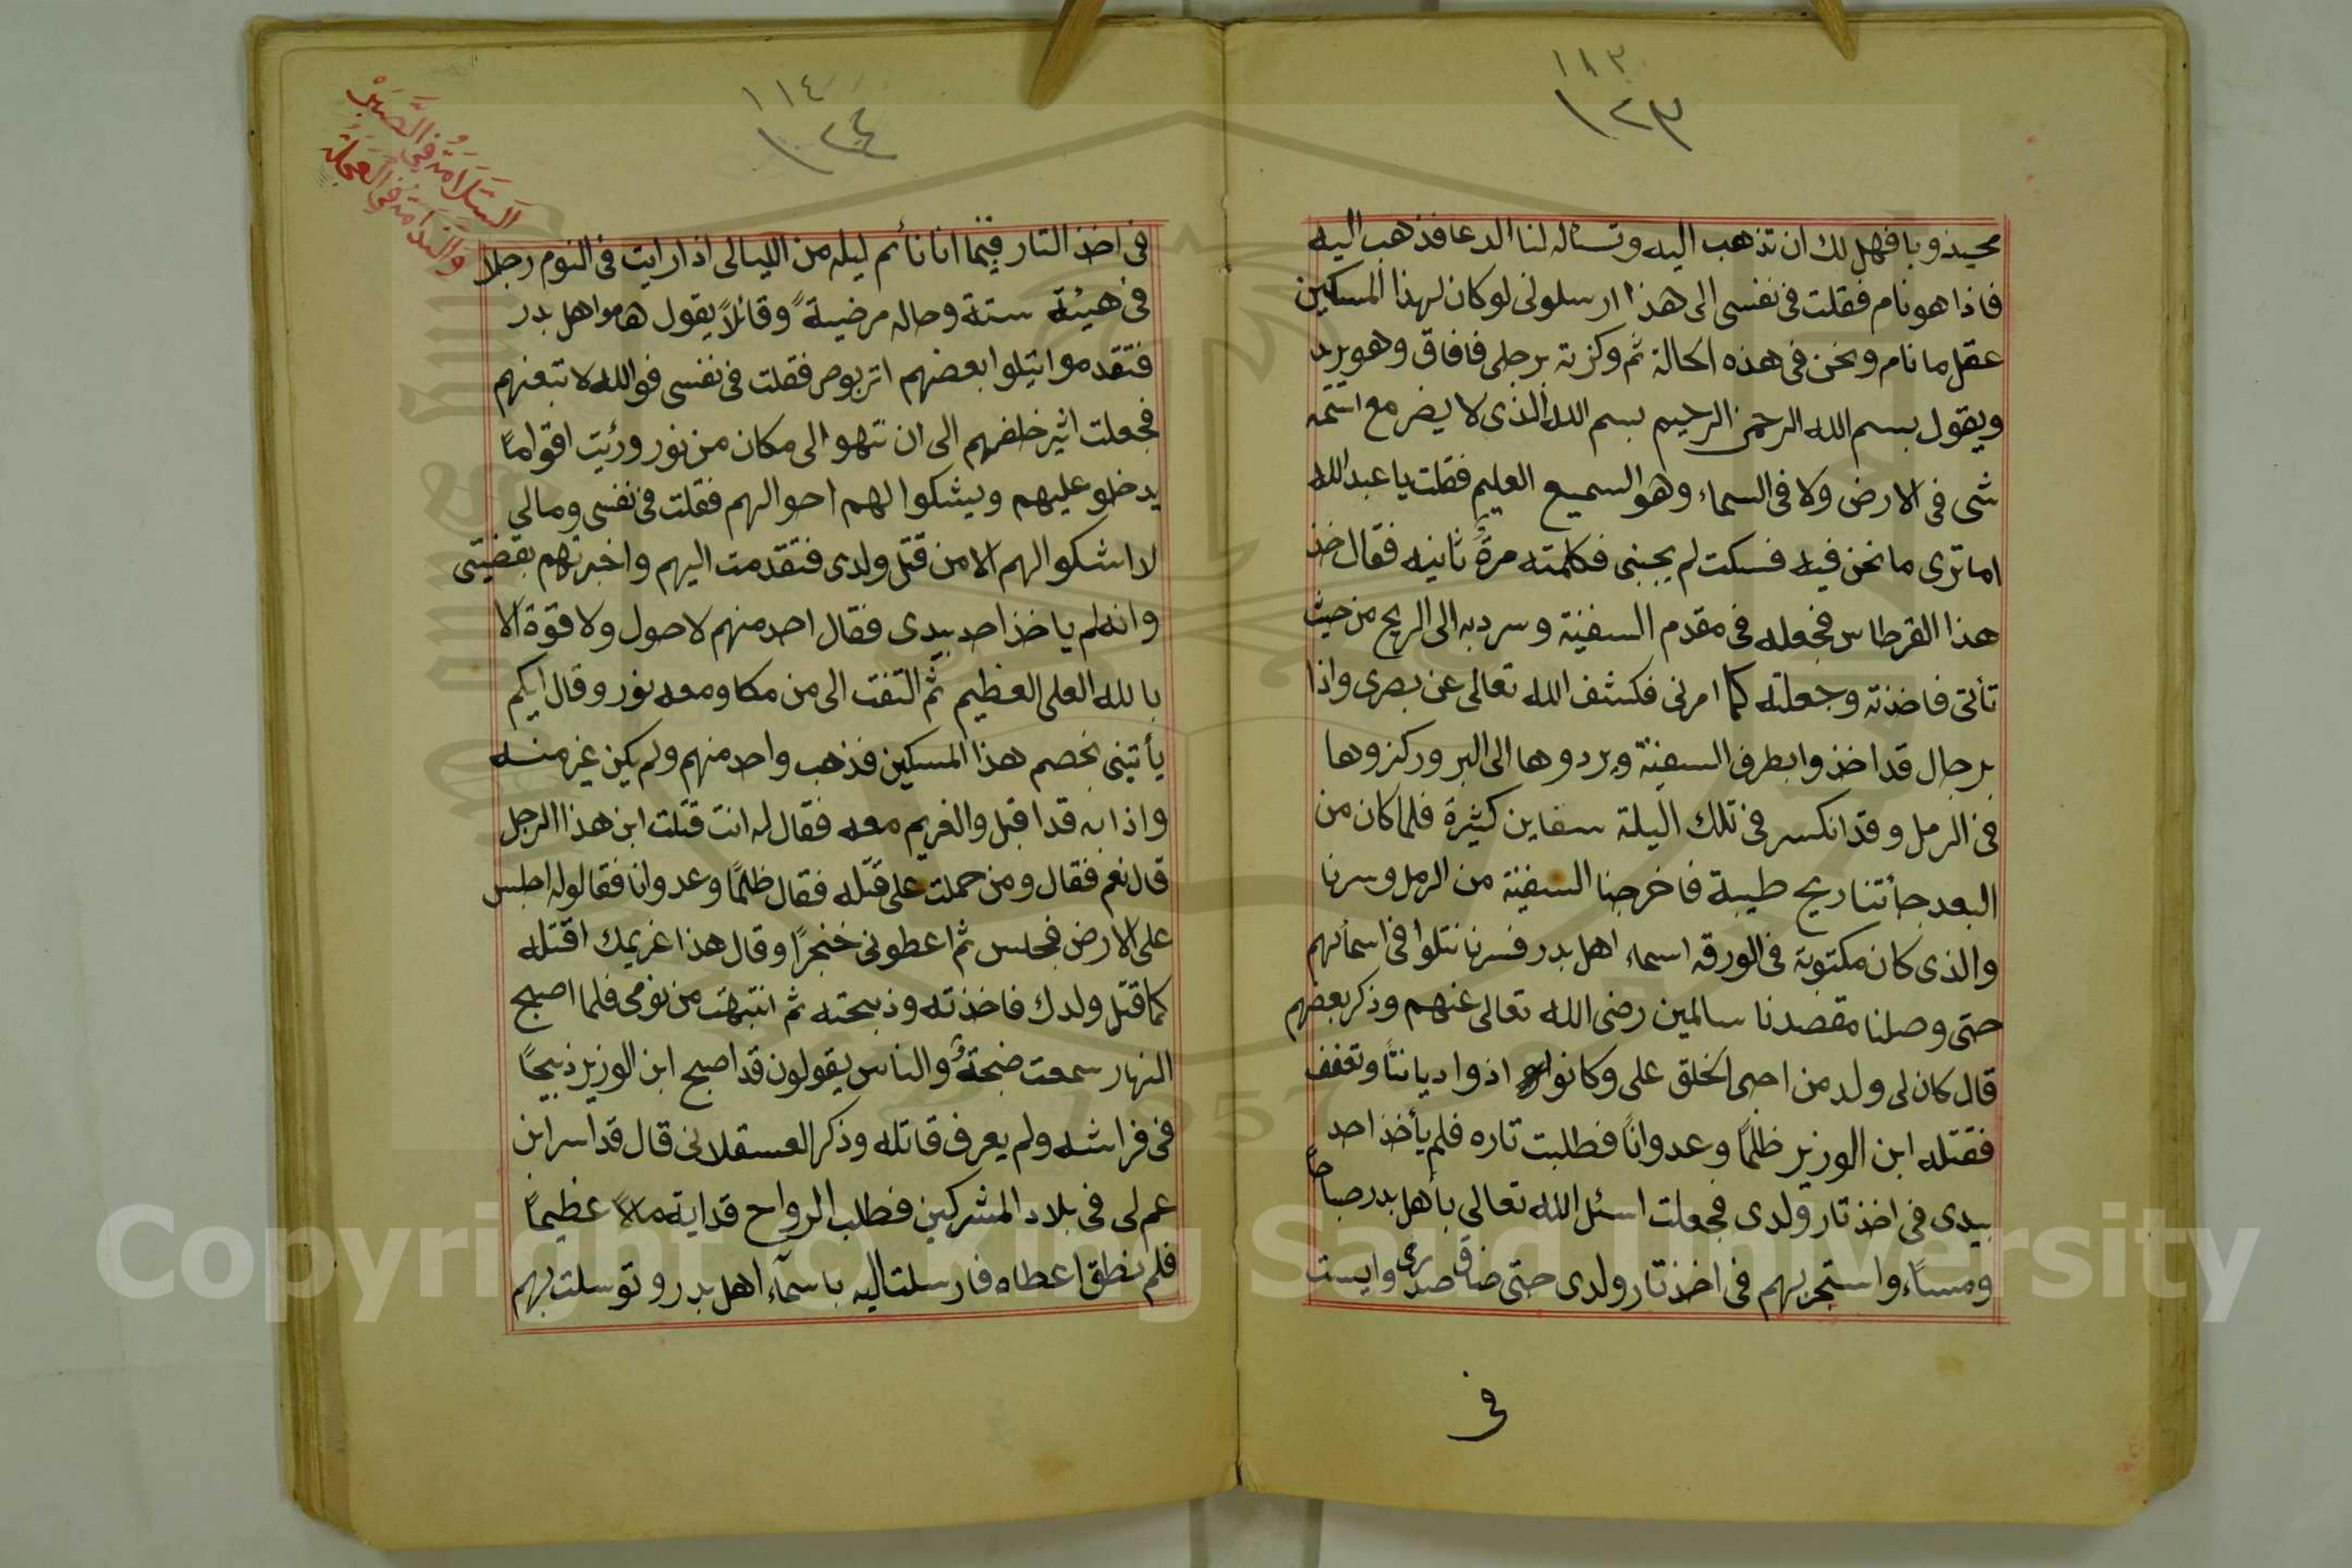 ١١٣
١٢٣
مجيذوبا فهل لك ان تذهب اليه وتسئاله لنا الدعا فذهب اليه
فاذا هو نام فقلت فى نفسى الى هذا ارسلونى لو كان لهذا المسكين
عقل ما نام ونحن فى هذه الحالة ثم وكزته برجلى فافاق وهو يرد
ويقول بسم الله الرحمن الرحيم بسم الله الذى لا يضر مع اسمه
شى فى الارض ولا فى السماء وهو السميع العليم فقلت يا عبد الله
اما ترى ما نحن فيه فسكت لم يجبنى فكلمته مرةً ثانيه فقال خذ
هذا القرطاس فجعله فى مقدم السفينة وسر دبه الى الريح من حيث
تأتى فاخذته وجعلته كما امرنى فكشف الله تعالى عن بصرى واذا
برجال قد اخذوا بطرف السفينة ويردوها الى البر وركزوها
فى الرمل وقد انكسر فى تلك اليلة سفاين كثيرة فلما كان من
البعد جأتنا ريح طيبة فاخرجنا السفينة من الرمل وسرنا
والذى كان مكتوبة فى الورقه اسماء اهل بدر فسرنا نتلوا فى اسمأئهم
حتى وصلنا مقصدنا سالمين رضى الله تعالى عنهم وذكر بعضهم
قال كان لى ولد من احى الخلق على وكانوا اذوا ديانتاً وتعفف
فقتله ابن الوزير ظلماً وعدواناً فطلبت تاره فلم يأخذ احد
بيدى فى اخذ تار ولدى فجعلت اسئل الله تعالى بأهل بدر صباحاً
ومساًء واستجر بهم فى اخذ تار ولدى حتى ضاق صدرى وايست
فى
١١٤
١٢٤
السَّلَامَةُ فِي الصَّبْرْ
وَالنَّدَامَةُ فِي الْعَجَلَةْ
فى اخذ التار فبينما انا نأئم ليله من الليالى اذا رايت فى النوم رجلا
فى هيئة ستة وحاله مرضيةً وقائلاً يقول هاموا اهل بدر
فتقدموا يتيلوا بعضهم اتربوص فقلت فى نفسى فوالله لاتبعنهم
فجعلت اثير خلفهم الى ان نتهوا الى مكان من نور ورئيت اقواماً
يدخلو عليهم ويشكوا لهم احوالهم فقلت فى نفسى ومالى
لا اشكوا لهم الامن قتل ولدى فتقدمت اليهم واخبرتهم بقضيتى
وانه لم ياخذ احد بيدى فقال احد منهم لا حول ولا قوة الا
بالله العلى العظيم ثم التفت الى من مكا ومعه نور وقال ايكم
يأتينى بخصم هذا المسكين فذهب واحد منهم ولم يكن غير منه
واذا به قد اقبل والغريم معه فقال له انت قتلت ابن هذا الرجل
قال نعم فقال ومن حملت على قتله فقال ظلماً وعدوانا فقالوله اجلس
على الارض فجلس ثم اعطونى خنجراً وقال هذا غريمك اقتله
كما قتل ولدك فاخذته وذبحته ثم انتبهت من نومى فلما اصبح
النهار سمعت ضجةٌ والناس يقولون قد اصبح ابن الوزير ذبيحاً
فى فراشه ولم يعرف قاتله وذكر العسقلانى قال قد اسر ابن
عم لى فى بلاد المشركين فطلب الرواح قداية مالاً عظيماً
فلم نطق اعطاه فارسلت اليه باسمآء اهل بدر وتوسلت بهم
Copyright © King Saud University
1957